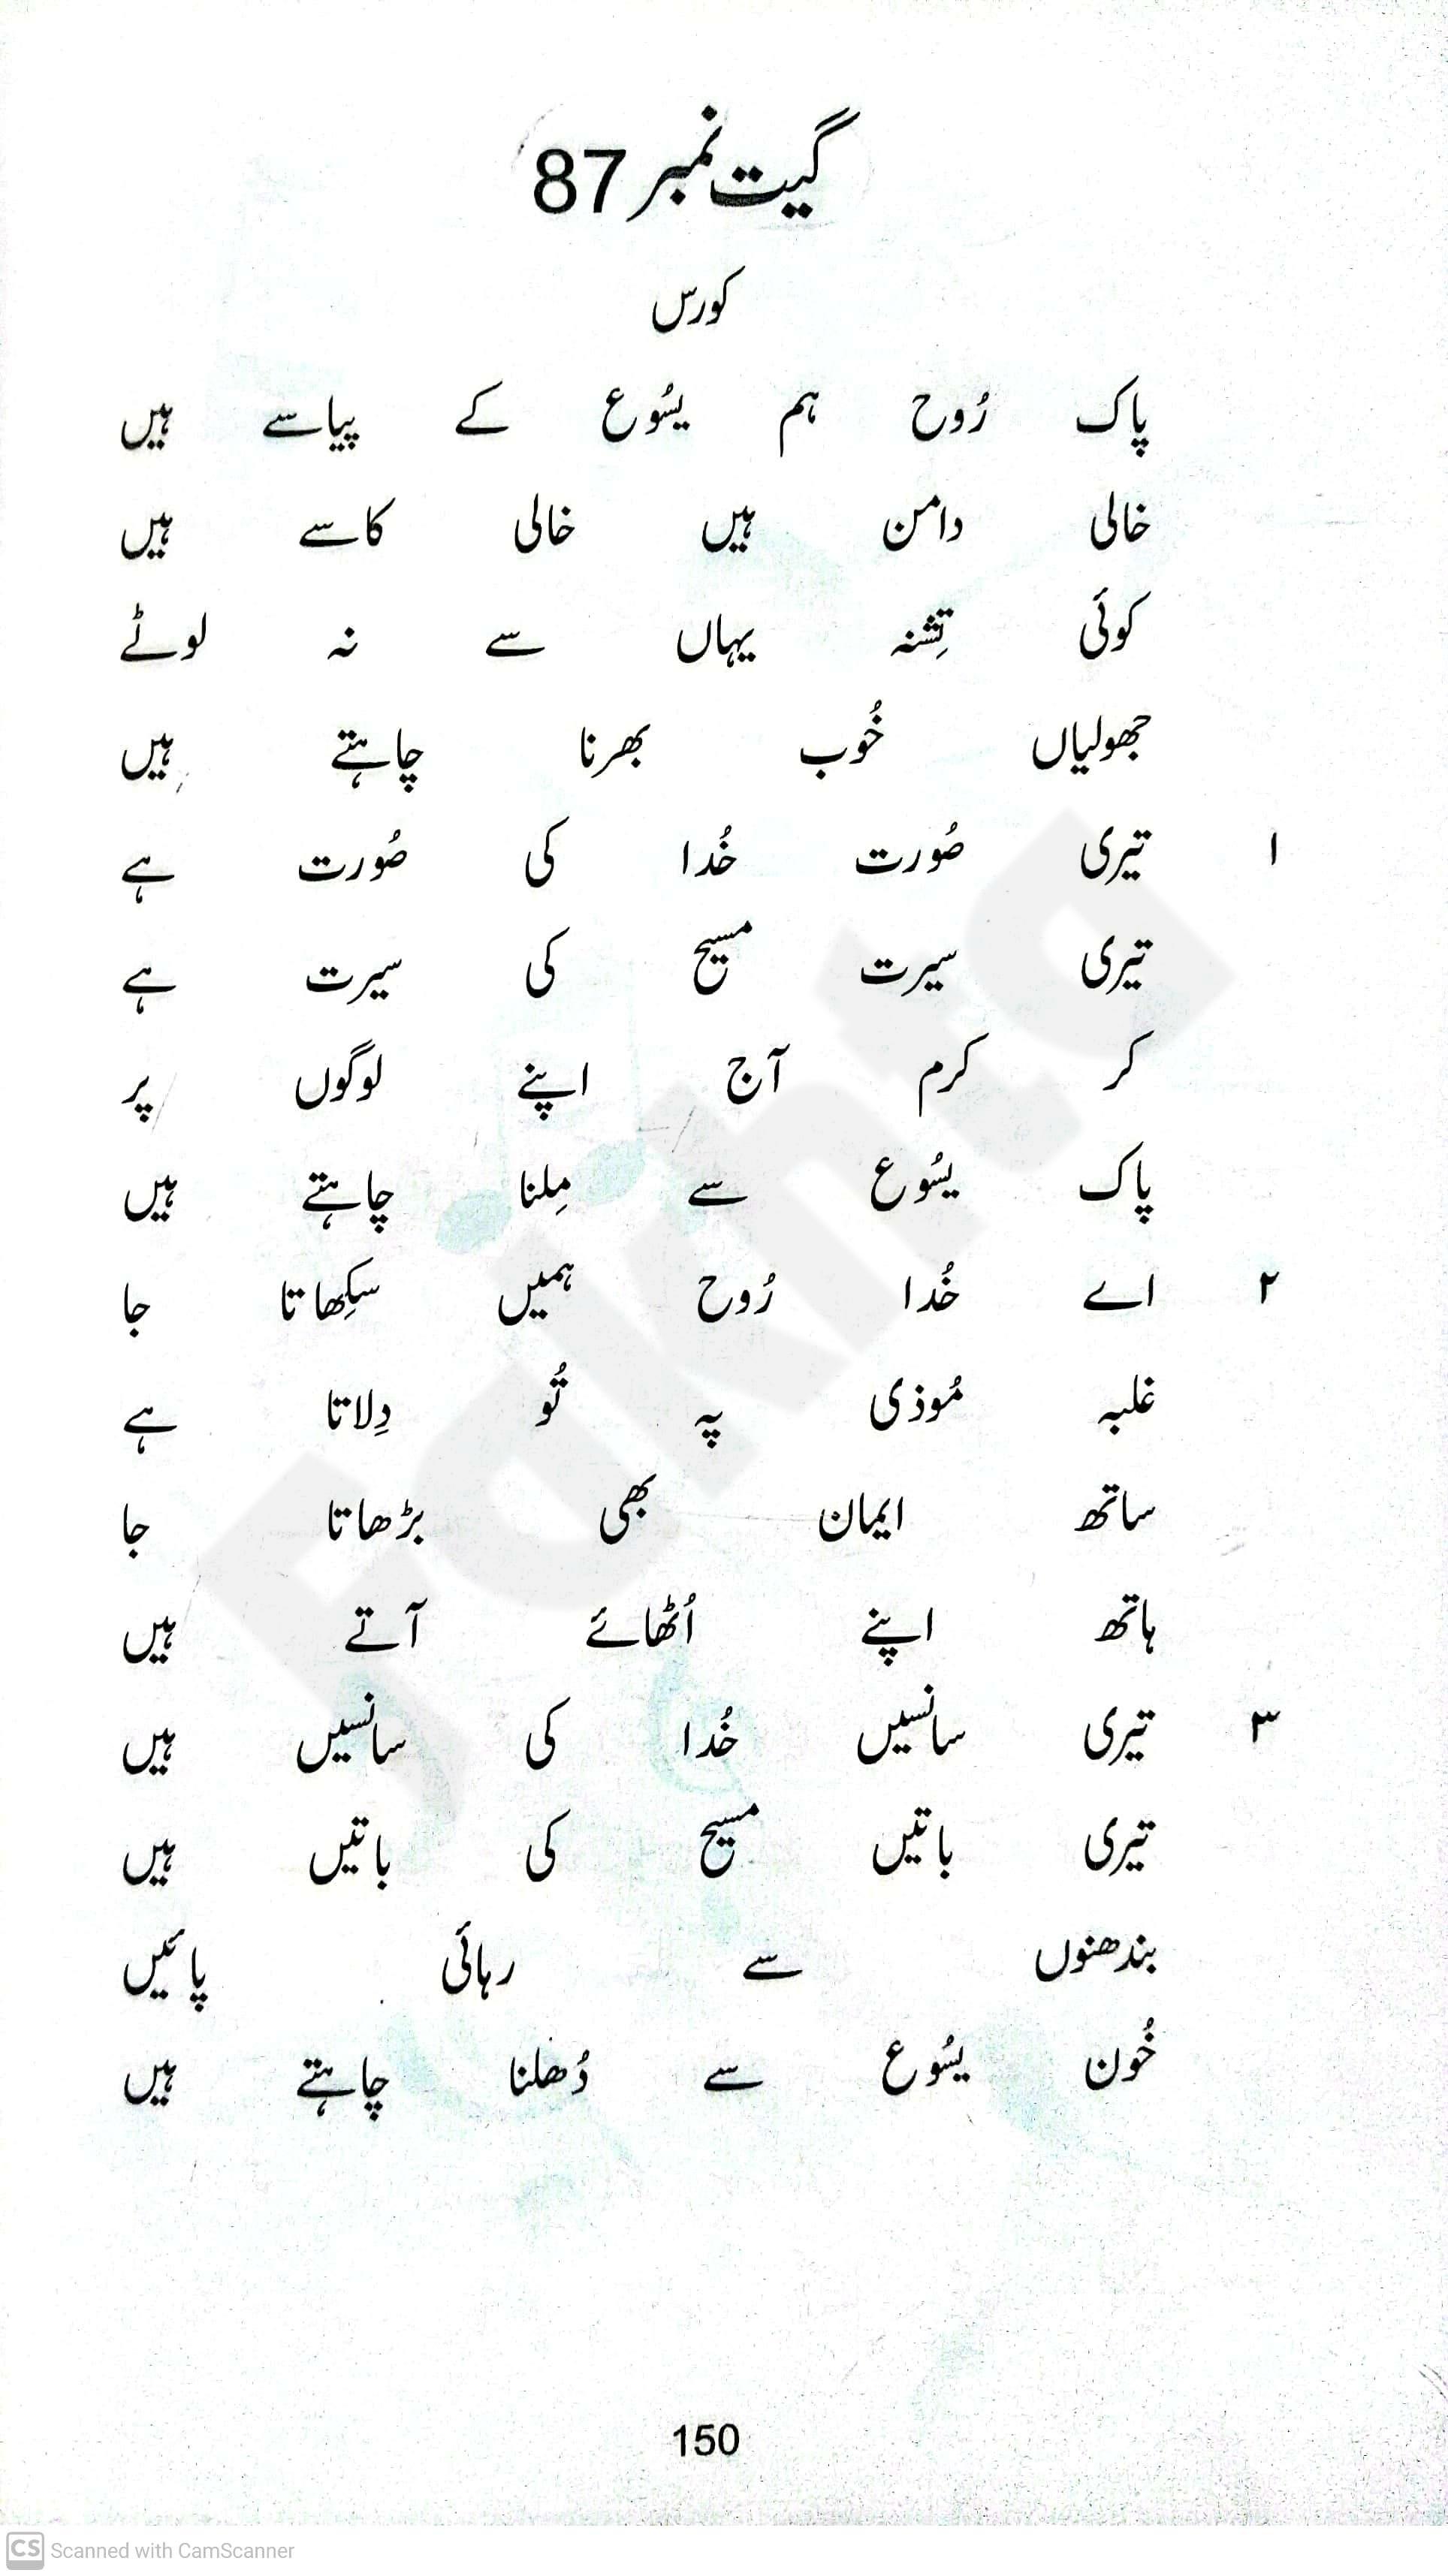 گیت نمبر 87
کورس
پاک رُوح ہم یسُوع کے پیاسے ہیں
خالی دامن ہیں خالی کاسے ہیں
کوئی تِشنہ یہاں سے نہ لوٹے
جھولیاں خُوب بھرنا چاہتے ہیں
۱ تیری صُورت خُدا کی صُورت ہے
تیری سیرت مسیح کی سیرت ہے
کر کرم آج اپنے لوگوں پر
پاک یسُوع سے مِلنا چاہتے ہیں
۲ اے خُدا رُوح ہمیں سِکھاتا جا
غلبہ مُوذی پہ تُو دِلاتا ہے
ساتھ ایمان بھی بڑھاتا جا
ہاتھ اپنے اُٹھائے آتے ہیں
۳ تیری سانسیں خُدا کی سانسیں ہیں
تیری باتیں مسیح کی باتیں ہیں
بندھنوں سے رہائی پائیں
خُون یسُوع سے دُھلنا چاہتے ہیں
Fakhta
150
CS Scanned with CamScanner